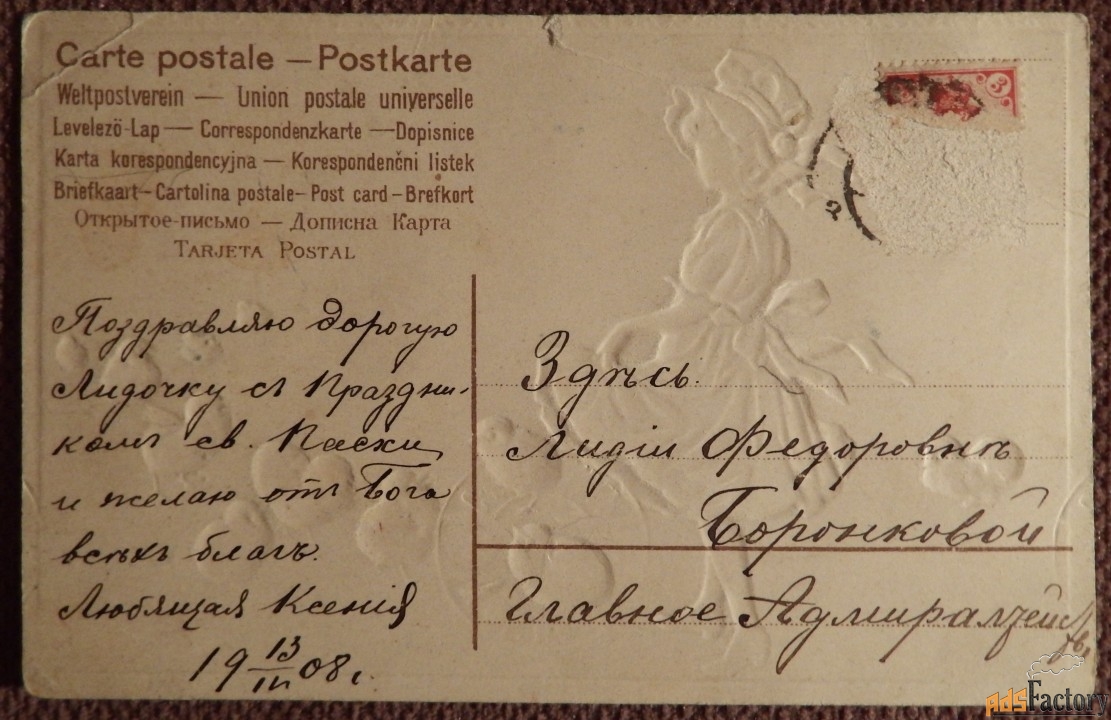 Carte postale — Postkarte
Weltpostverein — Union postale universelle
Levelezö-Lap — Correspondenzkarte — Dopisnice
Karta korespondencyjna — Korespondenčni listek
Briefkaart – Cartolina postale – Post card – Brefkort
Открытое-письмо — Дописна Карта
Tarjeta Postal
3
2
Поздравляю дорогую
Лидочку съ Праздни-
комъ св. Пасхи
и желаю отъ Бога
всѣхъ благъ.
Любящая Ксенія
19 13/III 08 г.
Здѣсь.
Лидіи Федоровнѣ
Боронковой
Главное Адмиралтейств
AdsFactory